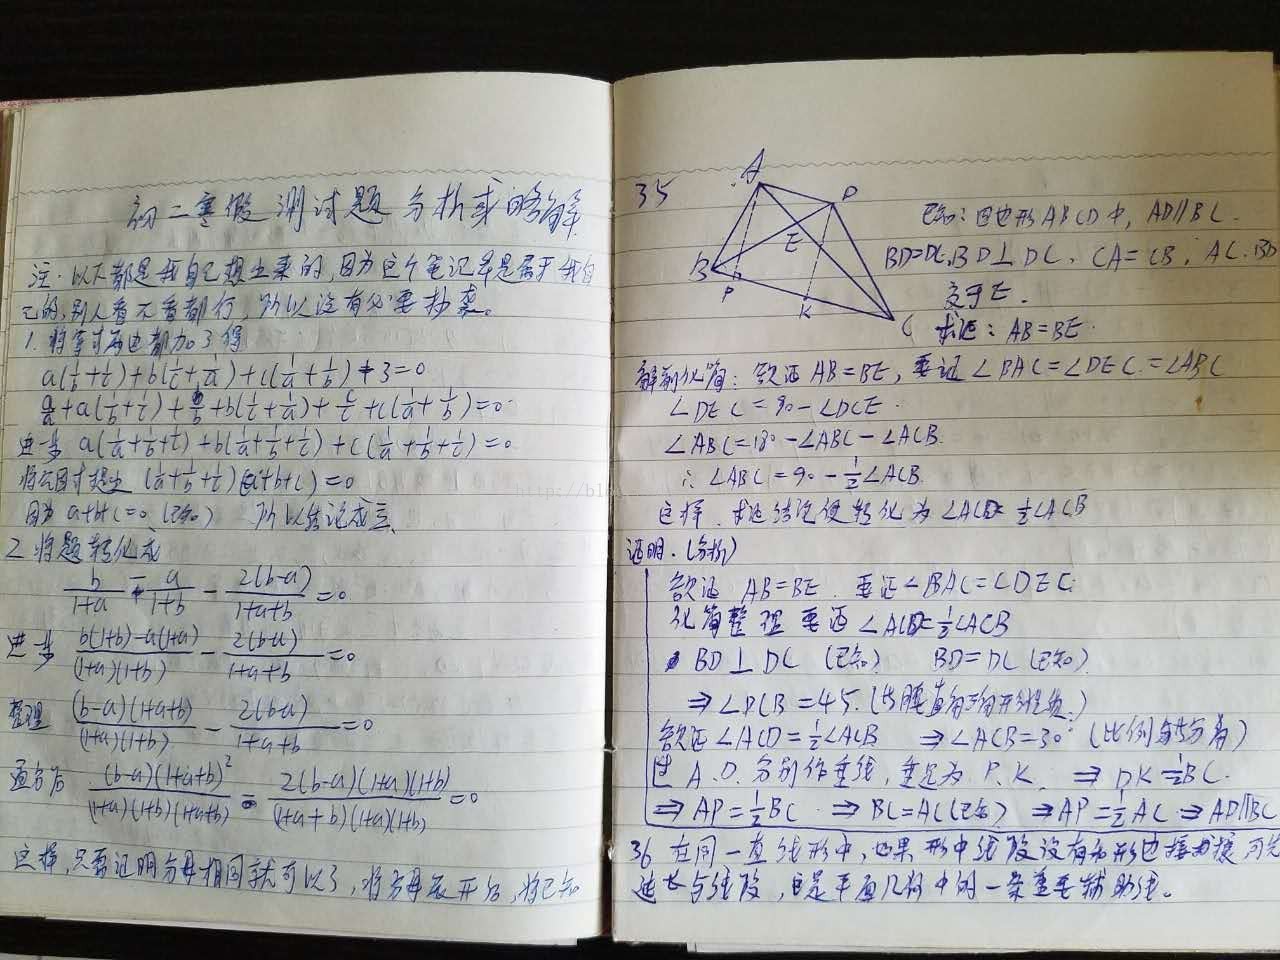 初二寒假测试题分析或略解
注.以下都是我自己想出来的,因为这个笔记本是属于我自
己的,别人看不看都行,所以没有必要抄袭。
1.将等式两边都加3得
a(1/b+1/c)+b(1/c+1/a)+c(1/a+1/b)+3=0
a/a+a(1/b+1/c)+b/b+b(1/c+1/a)+c/c+c(1/a+1/b)=0
进一步 a(1/a+1/b+1/c)+b(1/a+1/b+1/c)+c(1/a+1/b+1/c)=0
将公因式提出 (1/a+1/b+1/c)(a+b+c)=0
因为 a+b+c=0 (已知) 所以结论成立、
2 将题转化成
b/(1+a) - a/(1+b) - 2(b-a)/(1+a+b) =0
进一步 (b(1+b)-a(1+a))/((1+a)(1+b)) - 2(b-a)/(1+a+b) =0
整理 (b-a)(1+a+b)/((1+a)(1+b)) - 2(b-a)/(1+a+b) =0
通分后 (b-a)(1+a+b)²/((1+a)(1+b)(1+a+b)) - 2(b-a)(1+a)(1+b)/((1+a+b)(1+a)(1+b)) =0
这样,只要证明分母相同就可以了,将分母展开后,将已知
35
A
D
B
E
P
K
C
已知:四边形ABCD中, AD∥BC.
BD=DC,BD⊥DC, CA=CB, AC.BD
交于E.
求证: AB=BE.
解前化简: 欲证 AB=BE, 要证∠BAC=∠DEC=∠ABC
∠DEC=90-∠DCE.
∠ABC=180-∠ABC-∠ACB.
∴∠ABC=90-1/2∠ACB.
这样.求证结论便转化为∠ACD=1/2∠ACB
证明.(分析)
欲证 AB=BE. 要证∠BAC=∠DEC.
化简整理要证∠ACD=1/2∠ACB
BD⊥DC (已知) BD=DC (已知)
⇒∠DCB=45.(等腰直角三角形性质.)
欲证∠ACD=1/2∠ACB ⇒∠ACB=30° (比例与分身)
过 A.D.分别作垂线,垂足为 P.K. ⇒ DK=1/2BC.
⇒ AP=1/2BC ⇒ BC=AC(已知) ⇒ AP=1/2AC ⇒ AD∥BC
36 在同一直线形中,如果形中线段没有和形边接 可先
延长与线段,也是平面几何中的一条重要辅助线。